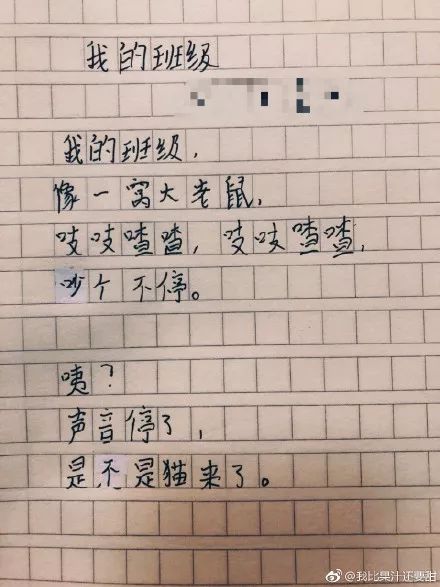 我的班级
我的班级,
像一窝大老鼠,
吱吱喳喳, 吱吱喳喳,
吵个不停。
咦?
声音停了,
是不是猫来了。
@我比果汁还要甜